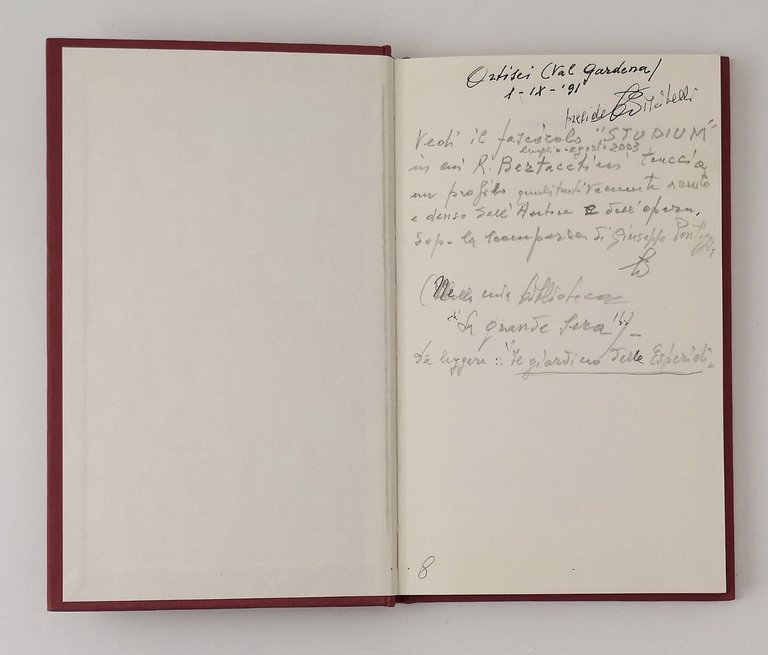 Ortisei (Val Gardena)
1-IX-'91
preside
Vedi il fascicolo "STUDIUM"
luglio-agosto 2003
in cui R. Bertacchini traccia
un profilo
e denso dell'Autore e dell'opera,
dopo la scomparsa di Giuseppe Pontiggia
(Nella mia biblioteca
"La grande sera")
Da leggere: "Il giardino delle Esperidi.
8